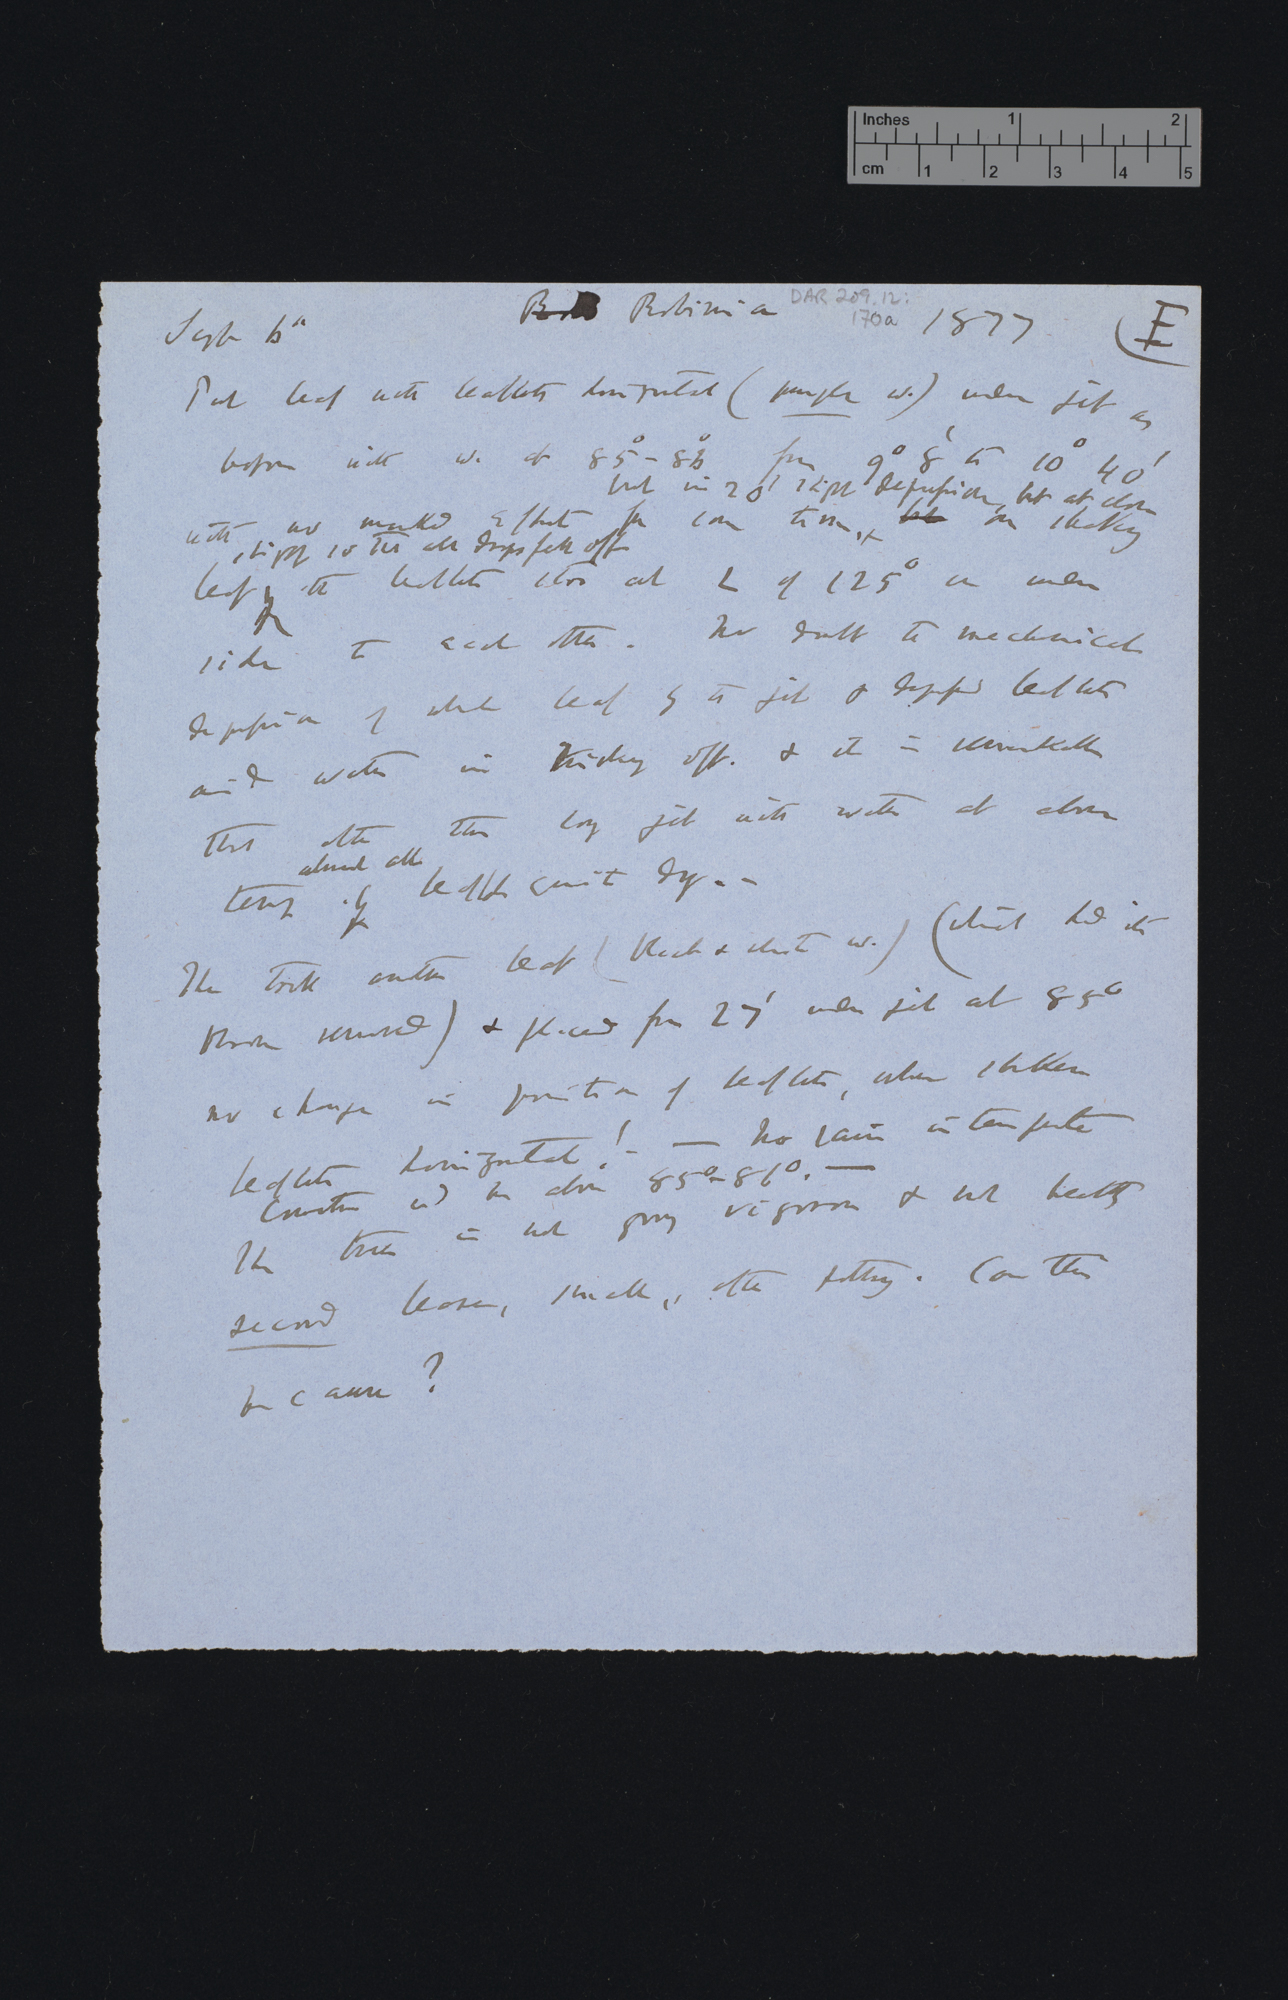 Inches 1 2
cm 1 2 3 4 5
DAR 209.12:
170a
Sept 6" Robinia 1877 E
Put leaf with leaflets horizontal (purple w.) under jet as
before with w. at 85°-86 from 9° 8' to 10° 40'
but in 20' slight depression, but at close
with no marked effect for some time, + on shaking
slightly so that all drops fell off
leaf the leaflets stood at L of 125° on under
side to each other. No doubt the mechanical
depression of whole leaf by the jet & depressed leaflets
aid water in trickling off. & it is remarkable
that after this long jet with water at above
almost all
temp. leaflets quite dry. -
Then took another leaf (black & white w.) (which had its
bloom removed) & placed for 27' under jet at 85°
no change in position of leaflets, when shaken
leaflets horizontal! - — No rain in temperate
countries wd be above 85°-86°. —
The tree is not growing vigorous & not healthy
second leaves, small, after potting. Can this
be cause?